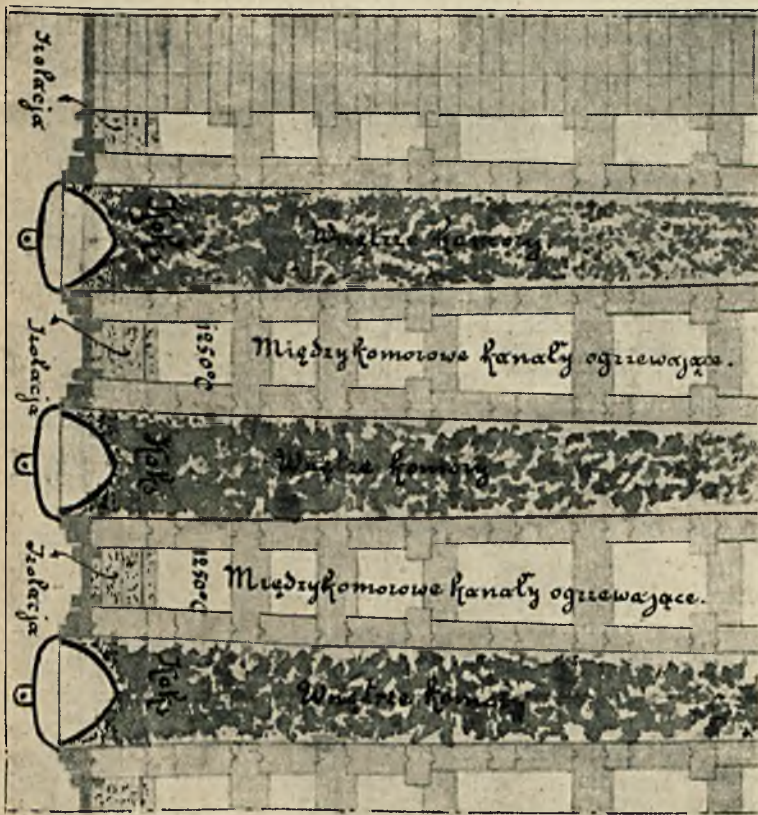 Izolacja
Koks
Wnętrze komory
Izolacja
1250°C
Międzykomorowe kanały ogrzewające.
Koks
Wnętrze komory
Izolacja
1250°C
Międzykomorowe kanały ogrzewające.
Koks
Wnętrze komory